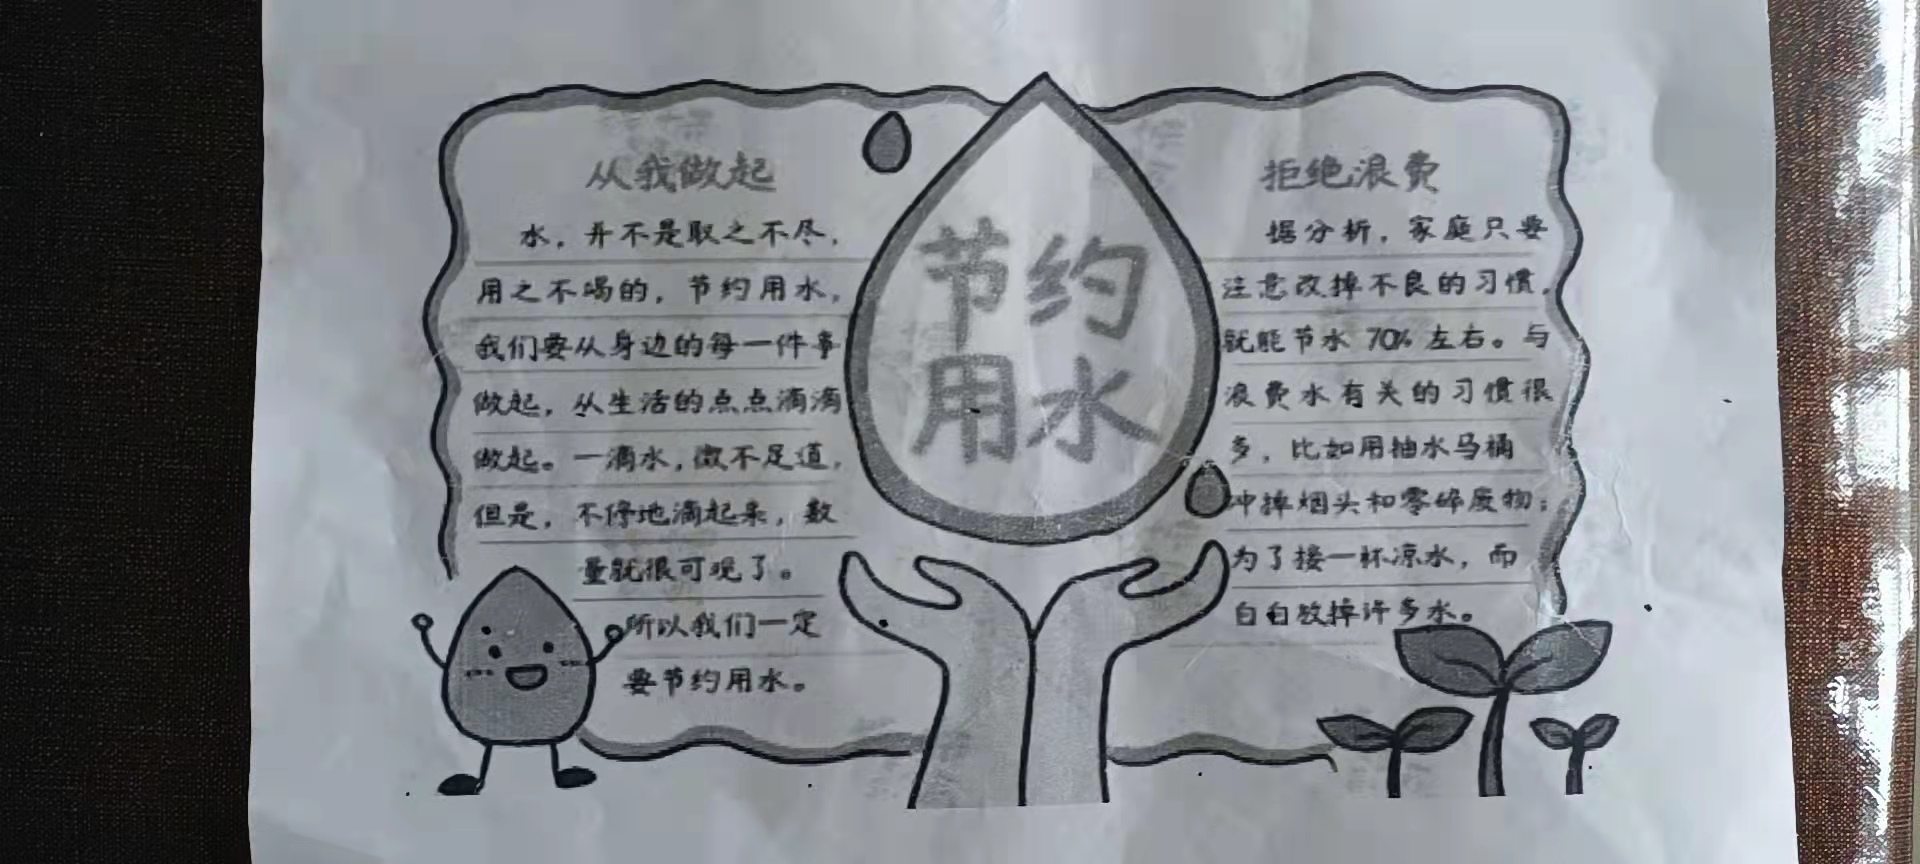 从我做起
水，并不是取之不尽，
用之不喝的，节约用水，
我们要从身边的每一件事
做起，从生活的点点滴滴
做起。一滴水，微不足道，
但是，不停地滴起来，数
量就很可观了。
所以我们一定
要节约用水。
节约
用水
拒绝浪费
据分析，家庭只要
注意改掉不良的习惯，
就能节水70%左右。与
浪费水有关的习惯很
多，比如用抽水马桶
冲掉烟头和零碎废物；
为了接一杯凉水，而
白白放掉许多水。